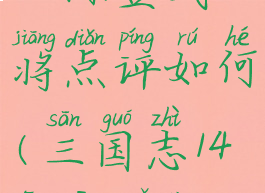 jiāng diǎn píng rú hé
将点评如何
sān guó zhì
(三国志14